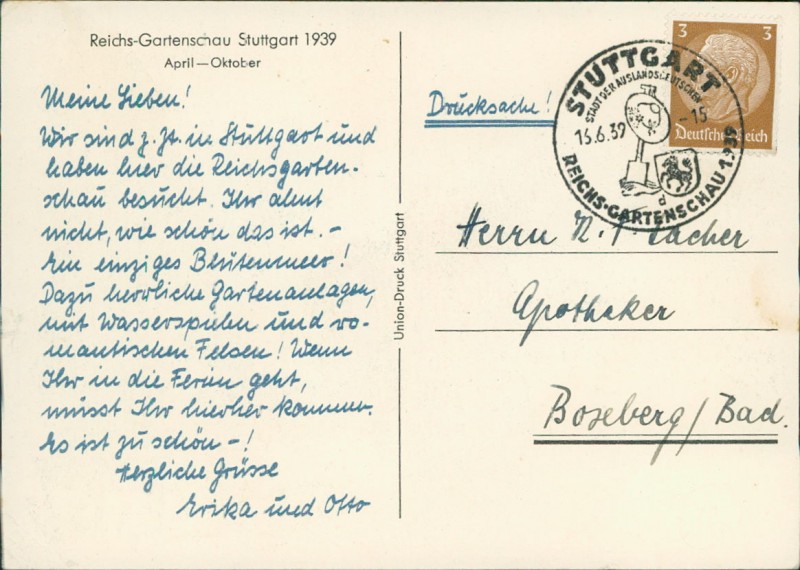 Reichs-Gartenschau Stuttgart 1939
April — Oktober
Meine Lieben!
Wir sind z. Zt. in Stuttgart und
haben hier die Reichsgarten-
schau besucht. Ihr ahnt
nicht, wie schön das ist. -
Ein einziges Blütenmeer!
Dazu herrliche Gartenanlagen,
mit Wasserspielen und ro-
mantischen Felsen! Wenn
Ihr in die Ferien geht,
müsst Ihr hierher kommen.
Es ist zu schön -!
Herzliche Grüsse
Erika und Otto
Union-Druck Stuttgart
Drucksache!
STUTTGART
STADT DER AUSLANDSDEUTSCHEN
15.6.39 -15
d
REICHS-GARTENSCHAU 1939
3 3
Deutsches Reich
Herrn
Apotheker
Boxberg / Bad.